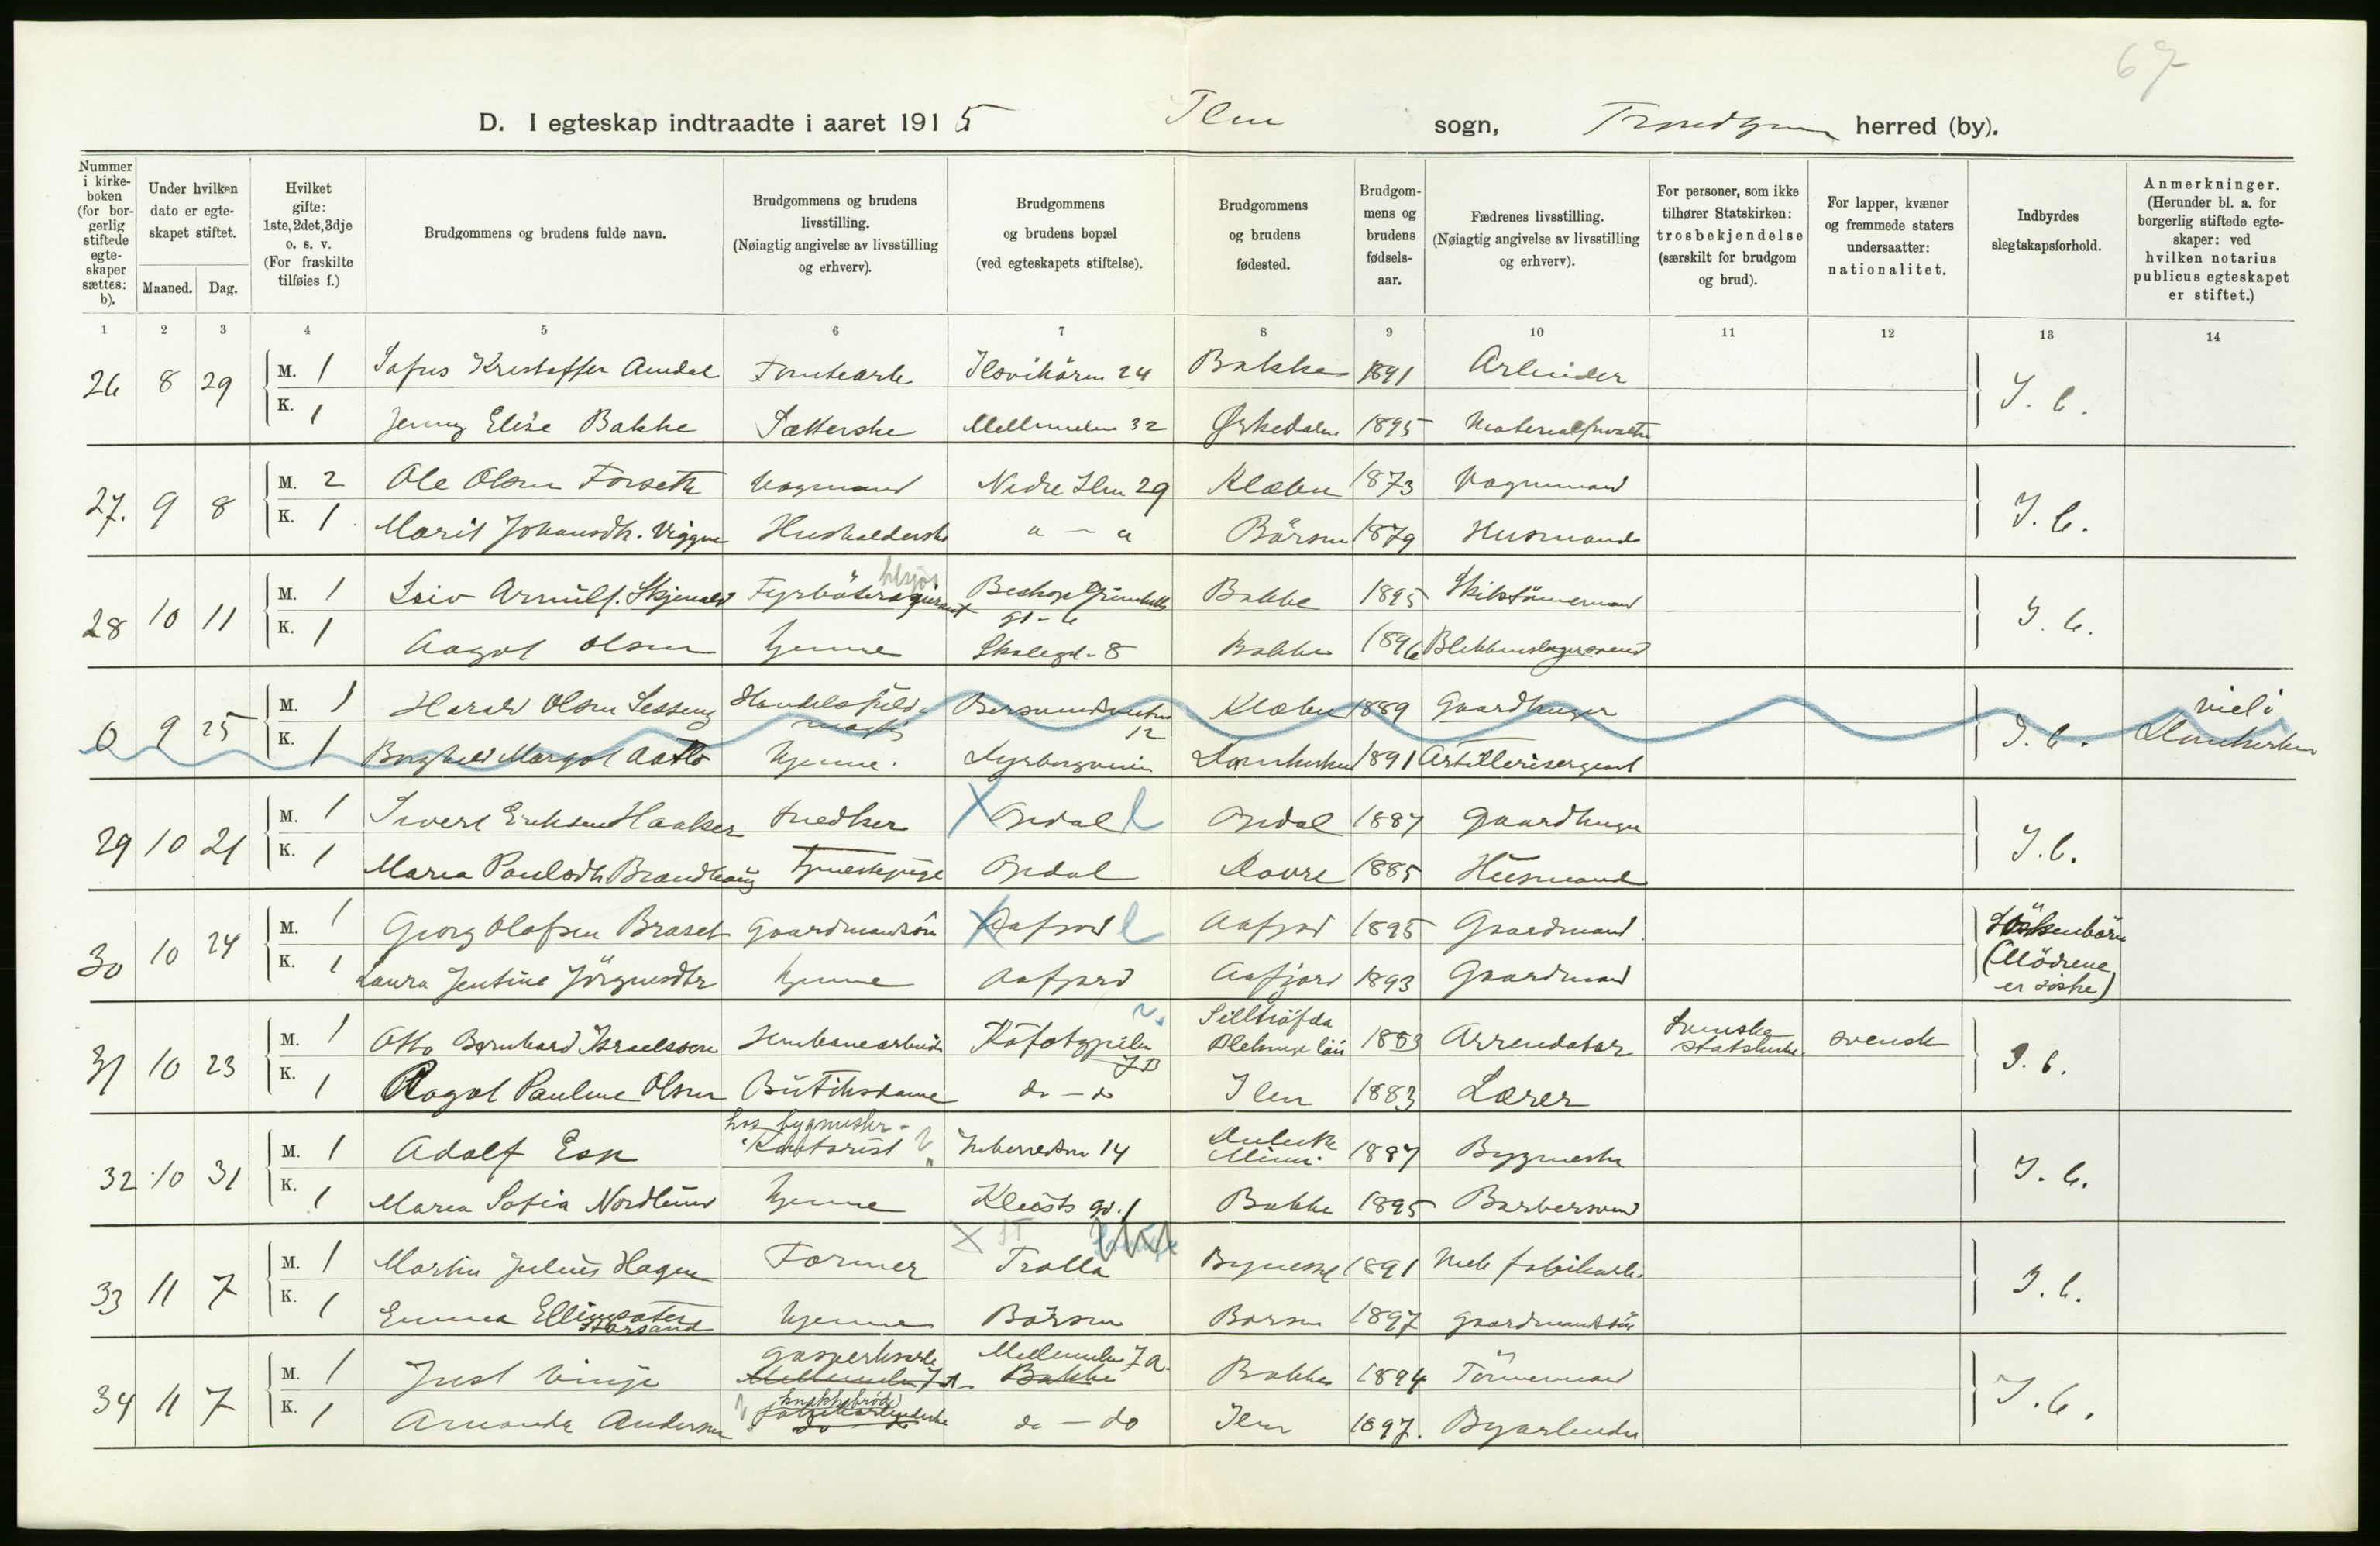 67
D. I egteskap indtraadte i aaret 1915 Ilen sogn, Trondhjem herred (by).
Nummer i kirke-boken (for bor-gerlig stiftede egte-skaper sættes: b).
Under hvilken dato er egte-skapet stiftet.
Maaned. Dag.
Hvilket gifte: 1ste, 2det, 3dje o. s. v. (For fraskilte tilføies f.)
Brudgommens og brudens fulde navn.
Brudgommens og brudens livsstilling. (Nøiagtig angivelse av livsstilling og erhverv).
Brudgommens og brudens bopæl (ved egteskapets stiftelse).
Brudgommens og brudens fødested.
Brudgom-mens og brudens fødsels-aar.
Fædrenes livsstilling. (Nøiagtig angivelse av livsstilling og erhverv).
For personer, som ikke tilhører Statskirken: trosbekjendelse (særskilt for brudgom og brud).
For lapper, kvæner og fremmede staters undersaatter: nationalitet.
Indbyrdes slegtskapsforhold.
Anmerkninger. (Herunder bl. a. for borgerlig stiftede egte-skaper: ved hvilken notarius publicus egteskapet er stiftet.)
1 2 3 4 5 6 7 8 9 10 11 12 13 14
26 8 29 M. 1 Sofus Kristoffer Amdal Ilsvikören 24 Bakke 1891 Arbeider
K. 1 Jenny Elise Bakke Sætterske Mellemilen 32 Ørkedalen 1895 I. b.
27. 9 8 M. 2 Ole Olsen Forseth Vognmand Nedre Ilen 29 Klæbu 1873 Vognmand
K. 1 Marit Johansdtr. Viggen Husholderske " — " Börsen 1879 Husmand I. b.
28 10 11 M. 1 Leiv Arnulf Skjenald Fyrböteraspirant Bakke 1895 Skibstömmermand
gt - 6
K. 1 Aagot Olsen hjemme Skolegd. 8 Bakke 1896 Blikkenslagersvend I. b.
0 9 25 M. 1 Harald Olsen Sesseng Handelsfuld-mægtig 12 Klæbu 1889 Gaardbruger
K. 1 Borghild Margot Aatlo hjemme. Dyrborgveien Domkirken 1891 Artillerisergeant I. b. viel i Domkirken
29 10 21 M. 1 Sivert Eriksen Haaker Snedker Opdal Opdal 1887 Gaardbruger
K. 1 Maria Paulsdtr Brandhaug Tjenestepige Opdal Dovre 1885 Husmand I. b.
30 10 24 M. 1 Georg Olafsen Braset Gaardmandsön Aafjord Aafjord 1895 Gaardmand
K. 1 Laura Jentine Jörgensdtr hjemme Aafjord Aafjord 1893 Gaardmand Söskenbörn (Mödrene er söstre)
31 10 23 M. 1 Otto Bernhard Israelsson Jernbanearbeider 7B Sillhöfda Blekinge län 1883 Arrendator Svenske statskirke. svensk
K. 1 Aagot Pauline Olsen Butiksdame do — do Ilen 1883 Lærer I. b.
32 10 31 M. 1 Adolf Esp hos bygmester Kontorist Inherredsvn 14 1887 Bygmester
K. 1 Maria Sofia Nordlund hjemme gd. 1 Bakke 1895 Barbersvend I. b.
33 11 7 M. 1 Martin Julius Hagen Former Trolla Byneset 1891 Mek fabrikarb.
K. 1 Emma Ellingsæter Storsand hjemme Börsen Börsen 1897 Gaardmandsön I. b.
34 11 7 M. 1 Just Vinje Gasverksarb Mellemilen 7a Bakke Bakke 1894 Tömmermand
K. 1 Amanda Andersen knækkebröd fabrikarbeiderske do — do Ilen 1897. Byarbeider I. b.